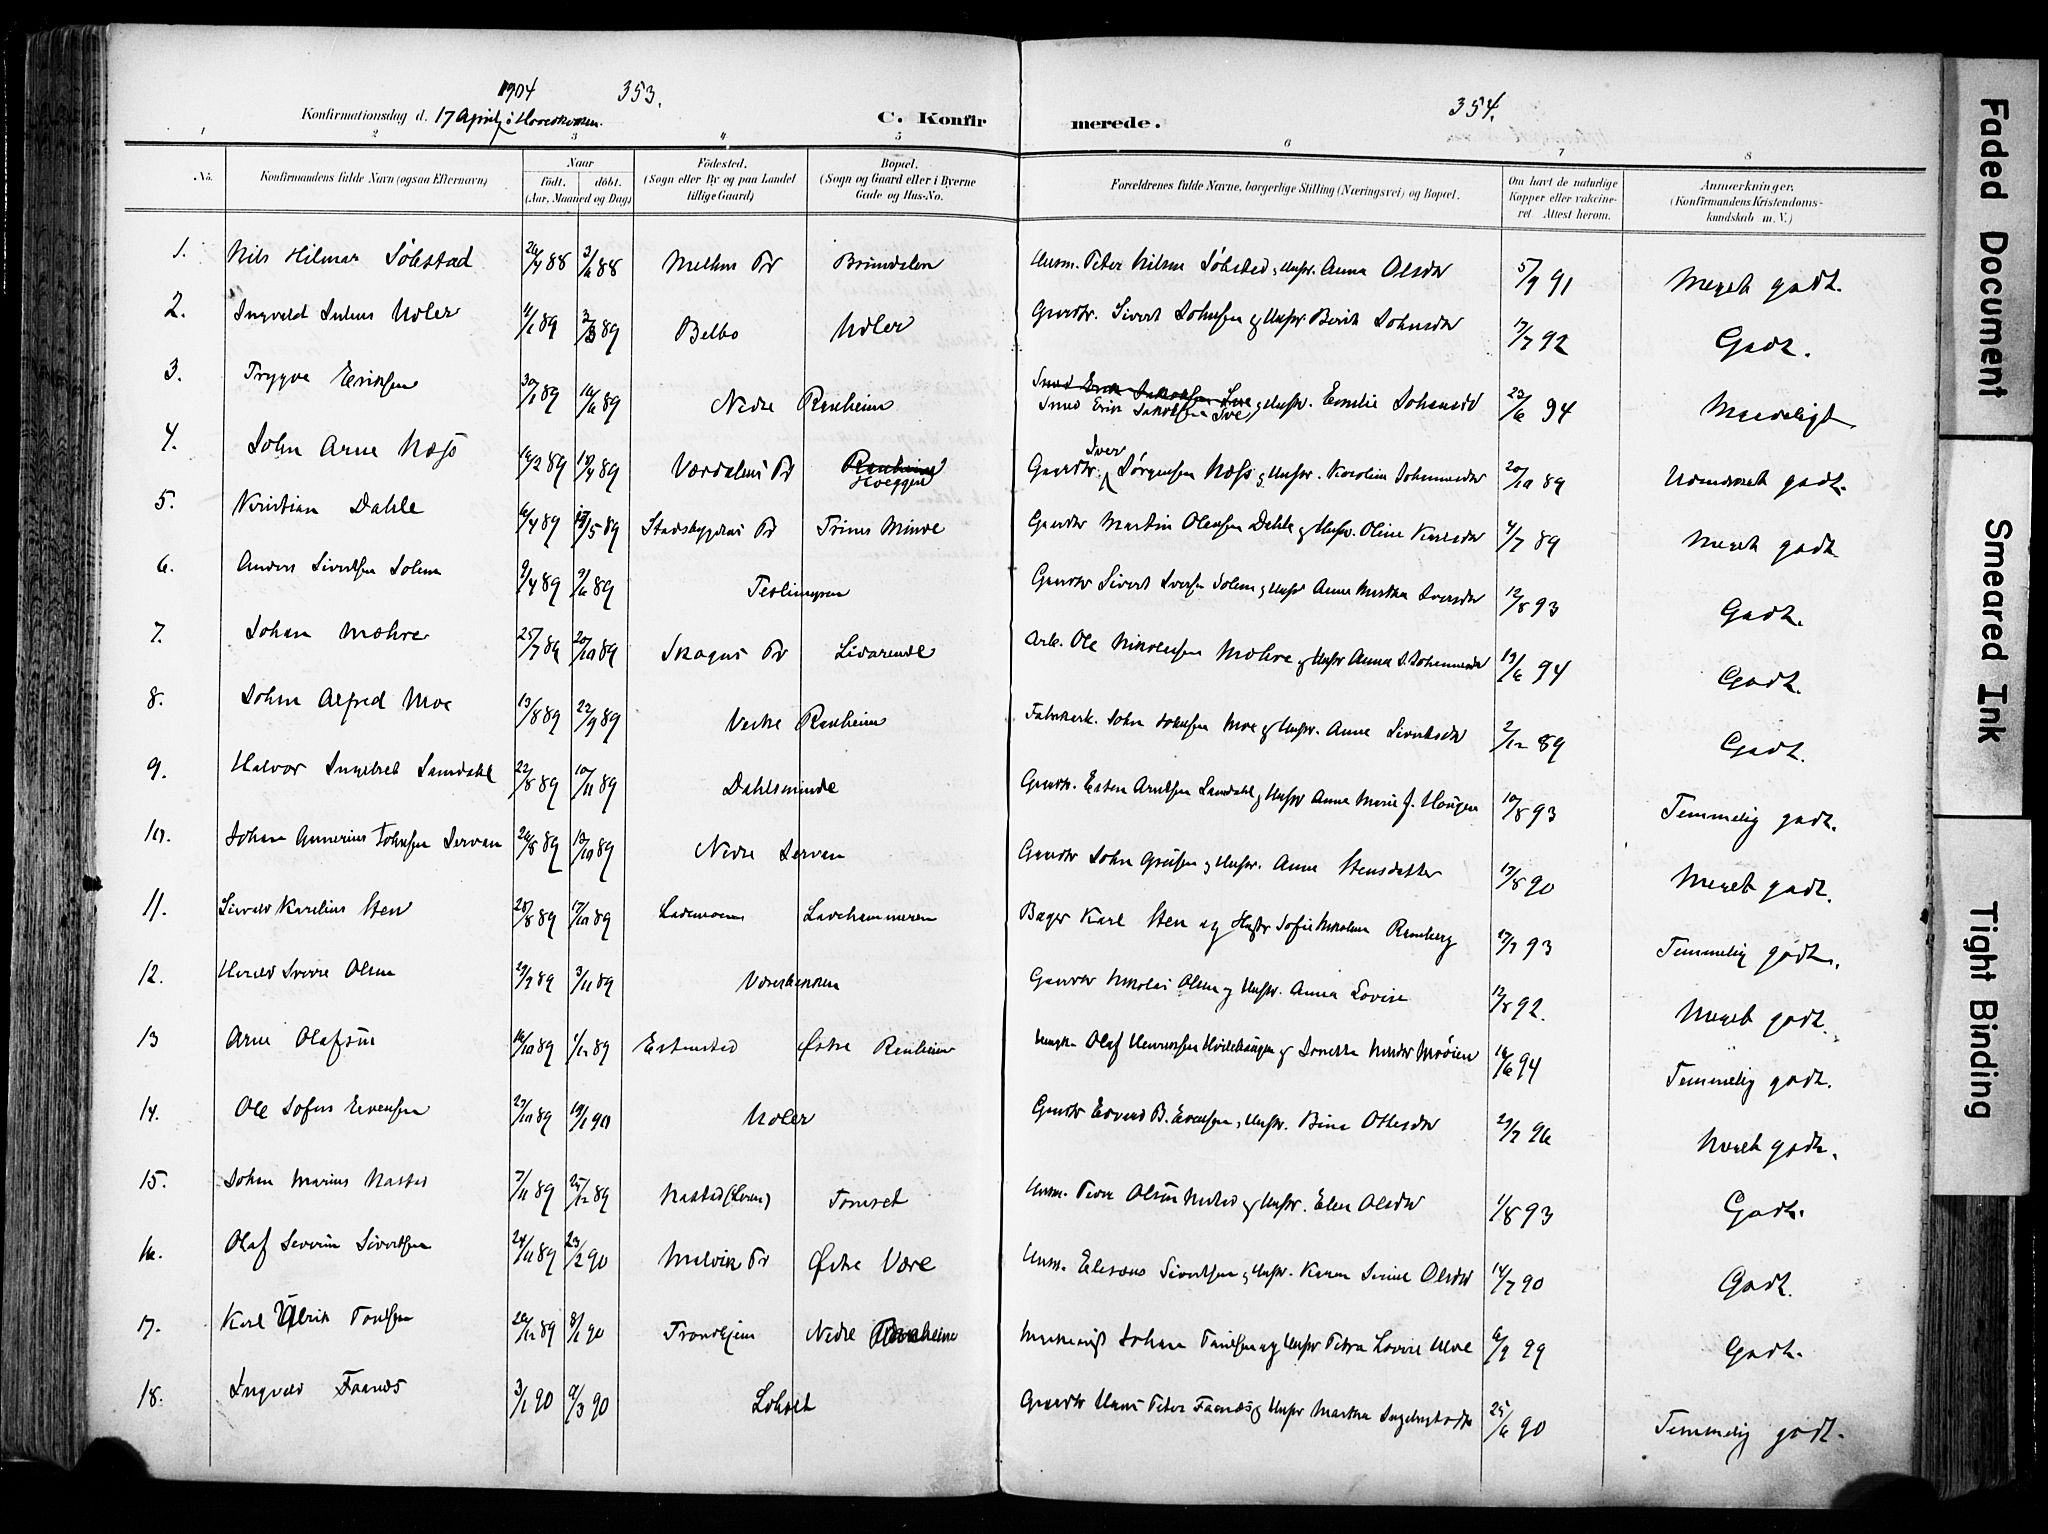 1904 353. 354.
Konfirmationsdag d. 17 April i Hovedkirken. C. Konfirmerede.
1 2 3 4 5 6 7 8
No. Konfirmandens fulde Navn (ogsaa Efternavn) Naar födt. döbt. (Aar, Maaned og Dag) Födested. (Sogn eller By og paa Landet tillige Gaard) Bopæl. (Sogn og Gaard eller i Byerne Gade og Hus-No. Forældrenes fulde Navne, borgerlige Stilling (Næringsvei) og Bopæl. Om havt de naturlige Kopper eller vakcineret Attest herom. Anmærkninger. (Konfirmandens Kristendomskundskab m. V.)
1. Nils Hilmar Söbstad 26/4 88 3/6 88 Melhus Pr Brundalen Husm. Peter Nilsen Söbstad og Hustr. Anna Olsdtr 5/9 91 Meget godt.
2. Ingvald Julius Uoler 11/1 89 3/3 89 Belbo Uoler Gaardbr. Sivert Johnsen og Hustr Berit Johnsdtr 17/7 92 Godt.
3. Trygve Eriksen 30/1 89 16/6 89 Nedre Ranheim Smed Erik Jakobsen og Hustr. Emelie Johansd 23/6 94 Maadeligt
4. John Arne Næss 14/2 89 19/4 89 Værdalens Pr Gaardbr. Iver Jörgensen Næss og Hustr. Karoline Johannesdtr 20/10 89 Udmærket godt.
5. Kristian Dahle 6/4 89 /5 89 Stadsbygdens Pr Trines Minde Gaardbr Martin Olausen Dahle og Hustr. Oline Karlsdtr 4/7 89 Meget godt
6. Anders Sivertsen Solem 9/4 89 9/6 89 Teslimyren Gaardbr Sivert Iversen Solem og Hustr Anne Martha Iversdtr 12/8 93 Godt.
7. Johan Mæhre 25/7 89 20/10 89 Skogns Pr Arb. Ole Nikolaisen Mæhre og Hustr Anna J. Johannesdtr 19/6 94 Godt.
8. Johan Alfred Moe 13/8 89 22/9 89 Vestre Ranheim Fabrikarb. John Johnsen Moe og Hustr. Anne Sivertsdtr 2/12 89 Godt.
9. Halvor Ingebret Lamdahl 22/8 89 10/11 89 Dahlsminde Gaardbr. Esten Arntsen Lamdahl og Hustr Anne Marie J. Haugen 10/8 93 Temmelig godt.
10. Johan Annerius Johnsen Jervan 26/8 89 13/10 89 Nedre Jervan Gaardbr John Hustr. Anne Stensdatter 17/8 90 Meget godt.
11. Sivald Karelius Sten 28/8 89 17/10 89 Lademoen Ladehammeren Bager Karl Sten og Hustr Sofie Nikolina Ramberg 17/7 93 Temmelig godt.
12. Harald Sverre Olsen 29/9 89 3/11 89 Væreshaugen Gaardbr Nikolai Olsen og Hustr. Anna Lovise 12/8 92. Meget godt.
13 Arne Olafsen 16/10 89 1/12 89 Estenstad Östre Ranheim Olaf Henriksen og Mröien 16/6 94 Temmelig godt.
14. Ole Sofus Evensen 27/10 89 19/1 90 Uoler Gaardbr Edvard B. Evensen og Hustr. Bina Ottesdtr 29/7 96 Meget godt.
15. Johan Marius Nastad 7/11 89 25/12 89 Nastad (Leren) Tomset Husm. Peder Olsen Nastad og Hustr. Elen Olsdtr 1/8 93 Godt.
16. Olaf Severin Sivertsen 24/11 89 23/2 90 Malvik Pr Östre Være Husm. Eliseus Sivertsen og Hustr. Karen Olsdtr 14/7 90 Godt.
17. Karl Ulrik 26/12 89 8/1 90 Trondhjem Nedre Ranheim Maskinist Johan og Hustr Petra Lovise 6/9 99 Godt.
18. Ingvald Faanes 3/1 90 9/3 90 Loholt Gaardbr Hans Peter Faanes og Hustr Martha Ingebrigtsdtr 25/6 90 Temmelig godt.
Faded Document
Smeared Ink
Tight Binding